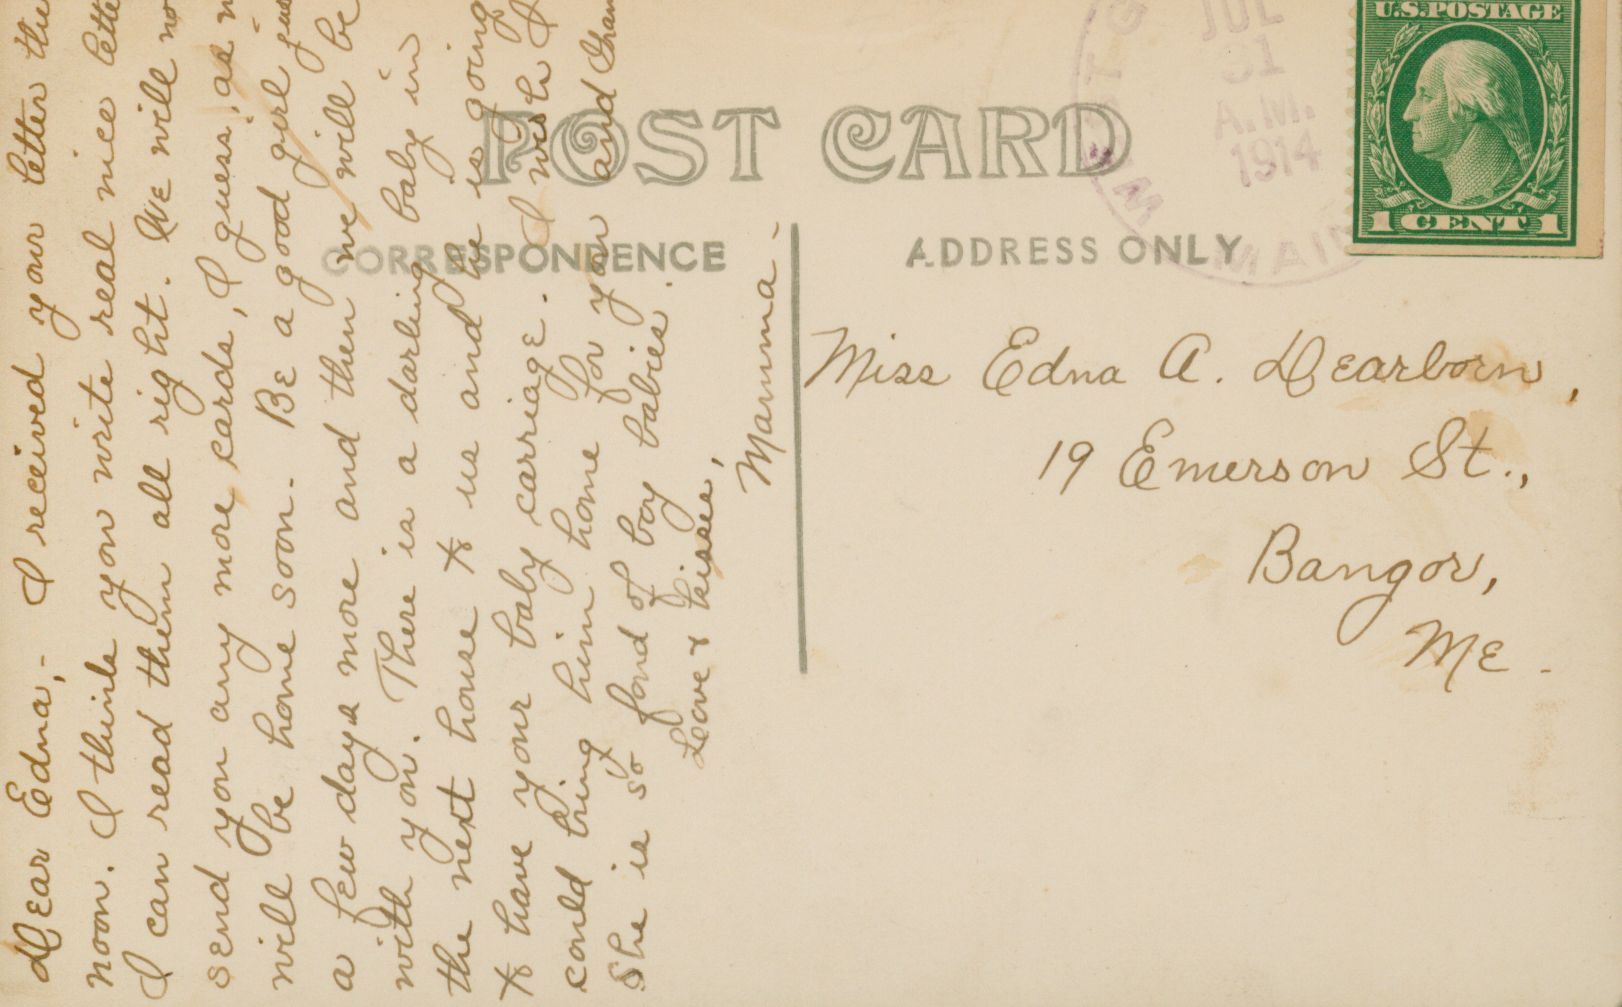 Dear Edna,- I received your letter this
noon. I think you write real nice lette
I can read them all right. We will no
send you any more cards, I guess, as
will be home soon. Be a good girl jus
a few days more and then we will be
with you. There is a darling baby in
the next house to us and he is going
to have your baby carriage. I wish I
could bring him home for you and Gram
She is so fond of boy babies.
Love & kisses,
Mamma-
POST CARD
CORRESPONDENCE
ADDRESS ONLY
JUL
31
A.M.
1914
MAIN
U.S.POSTAGE
1 CENT 1
Miss Edna A. Dearborn,
19 Emerson St.,
Bangor,
Me-